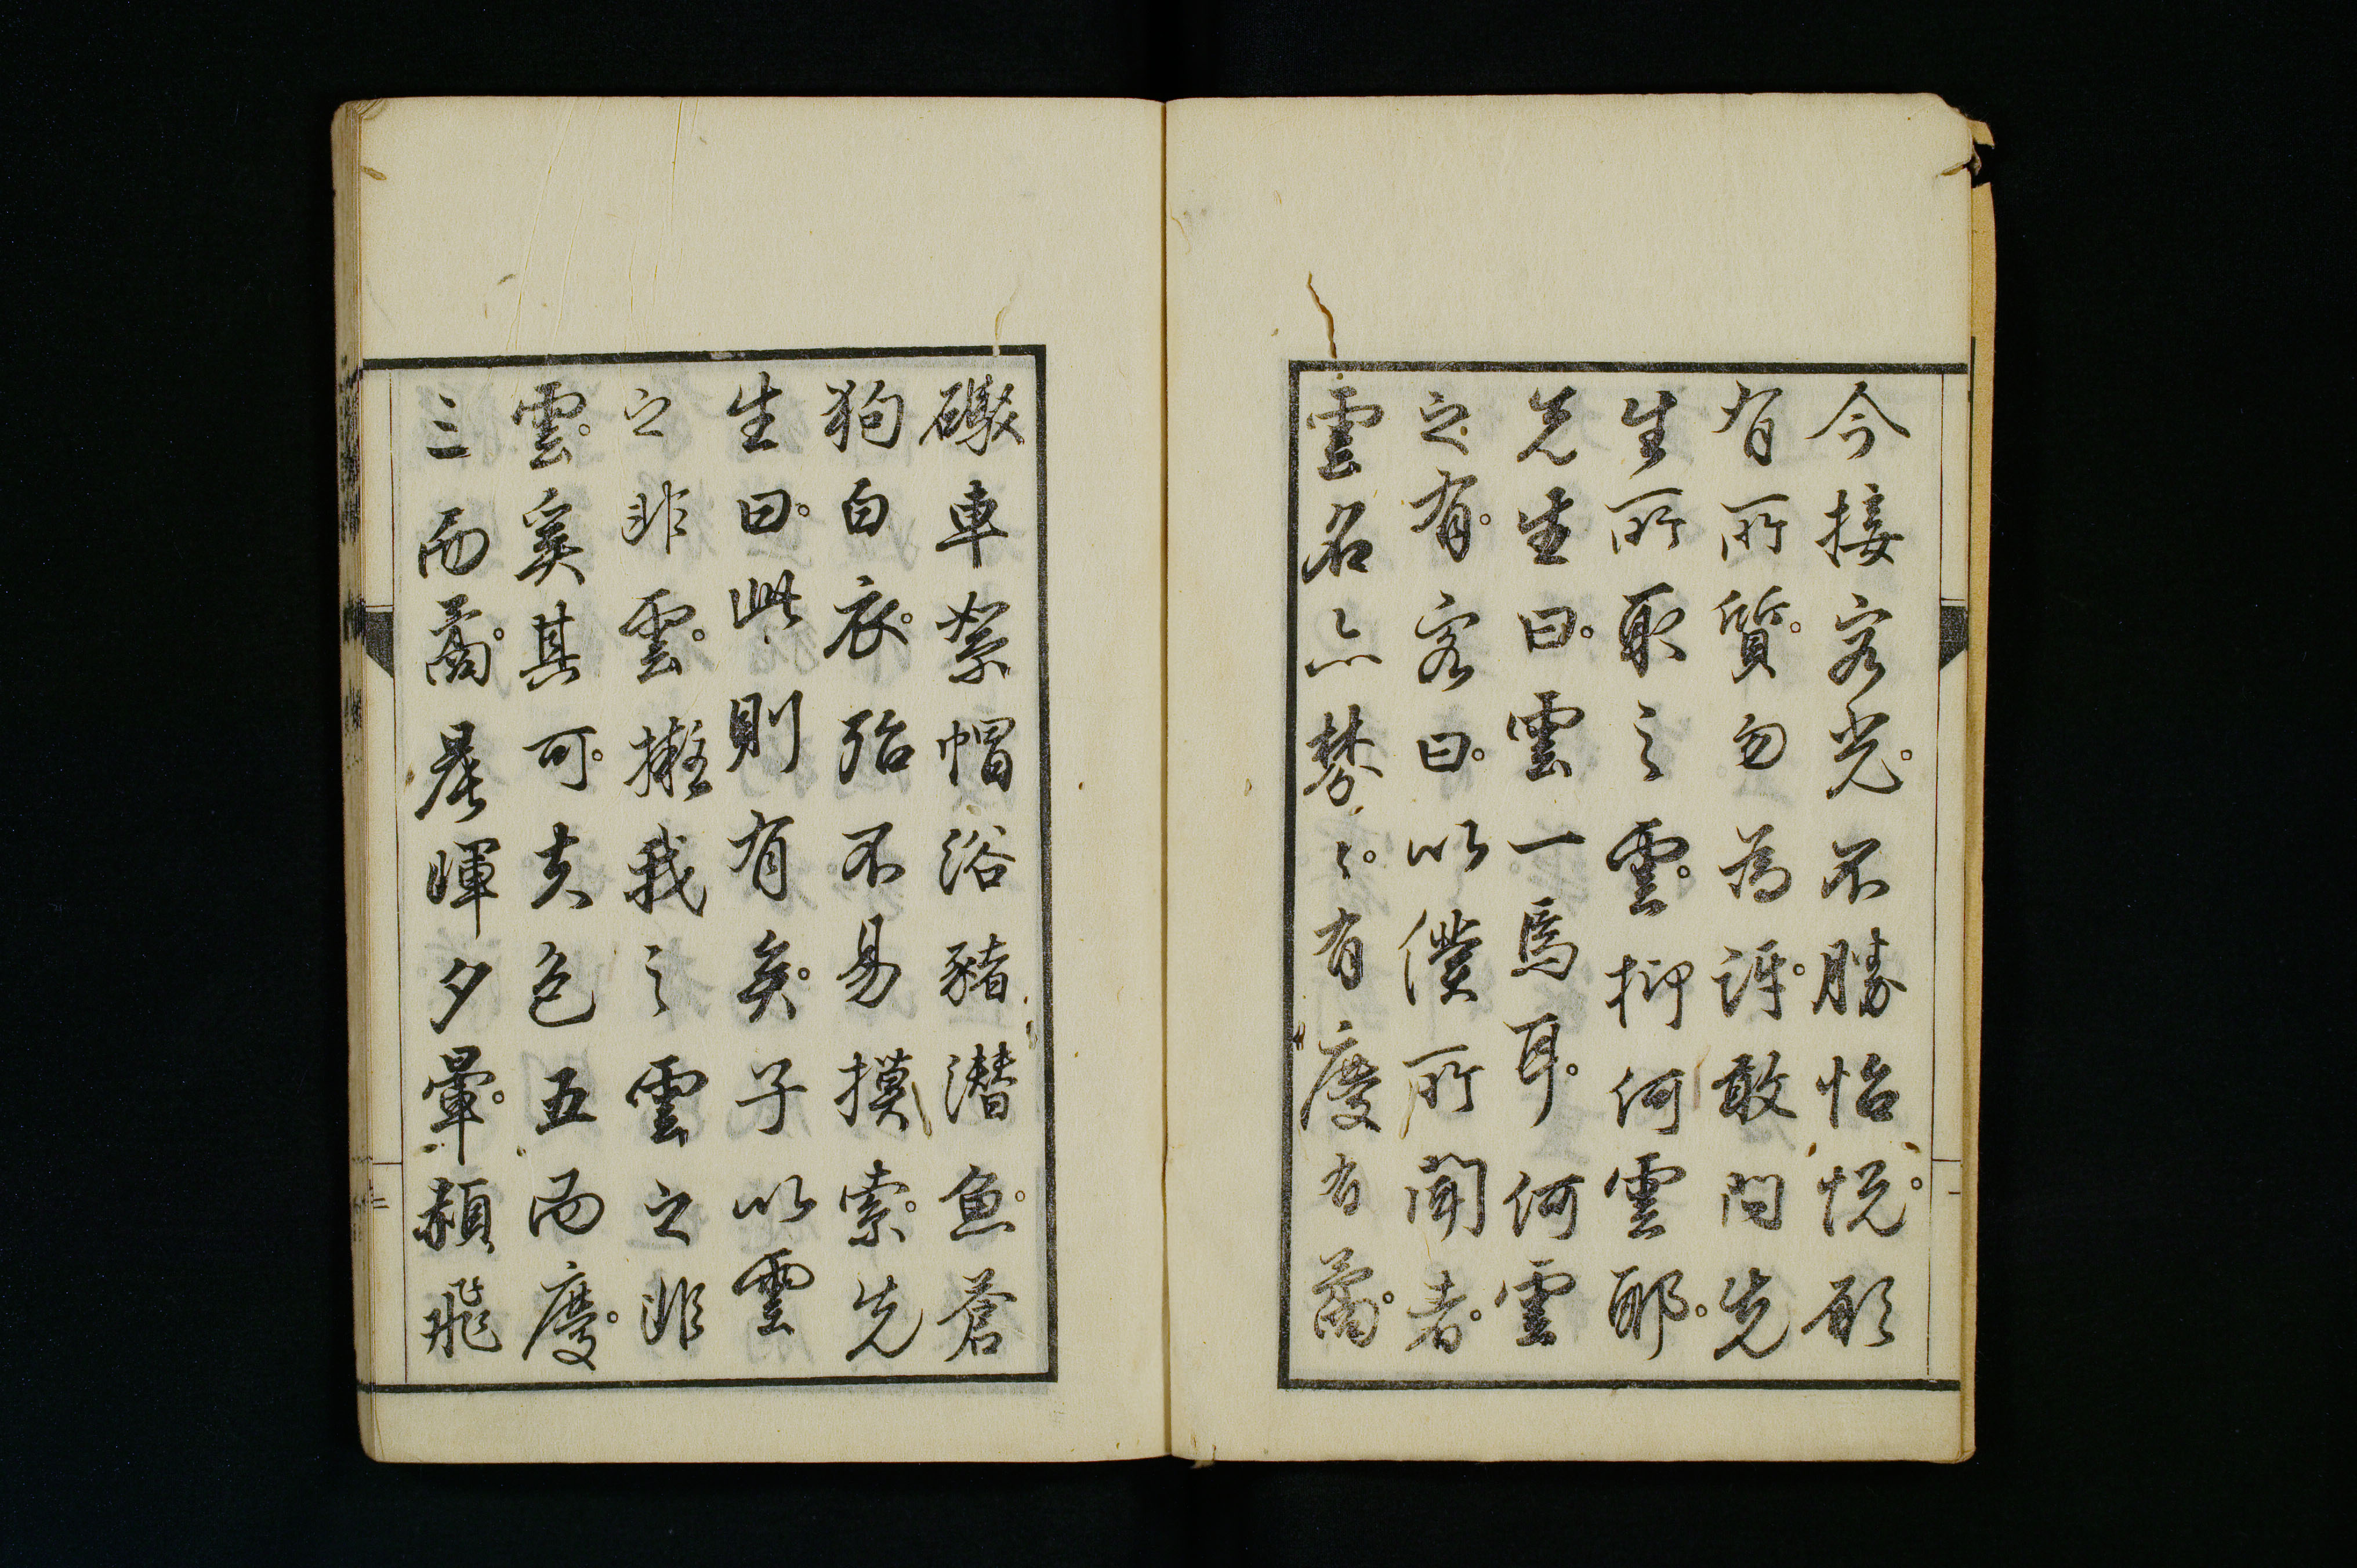 今接容光。不勝怡悦。願
有所質。勿為訝。敢問先
生所取之雲。抑何雲耶。
先生曰。雲一焉耳。何雲
之有。客曰。以僕所聞者。
雲名亦棼〻。有慶有矞。
礮車絮帽浴豬潛魚。蒼
狗白衣。殆不易摸索。先
生曰。此則有矣。子以雲
之非雲。擬我之雲之非
雲。奚其可。夫色五而慶。
三而矞。晨暉夕暈。頳飛